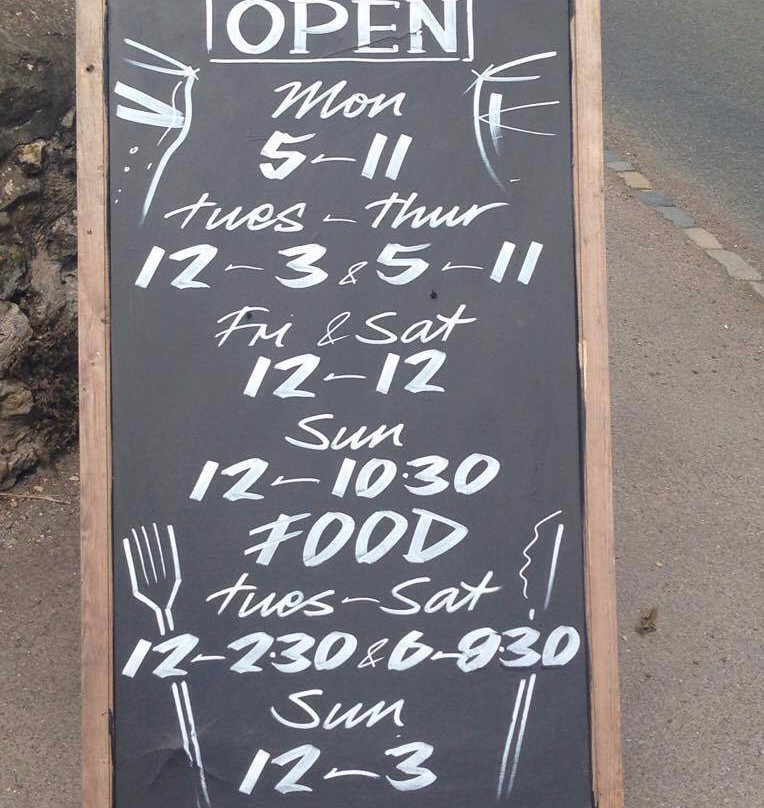 OPEN
Mon
5-11
tues - thur
12-3 & 5-11
Fri & Sat
12-12
Sun
12-10·30
FOOD
tues-Sat
12-2·30 & 6-9·30
Sun
12-3